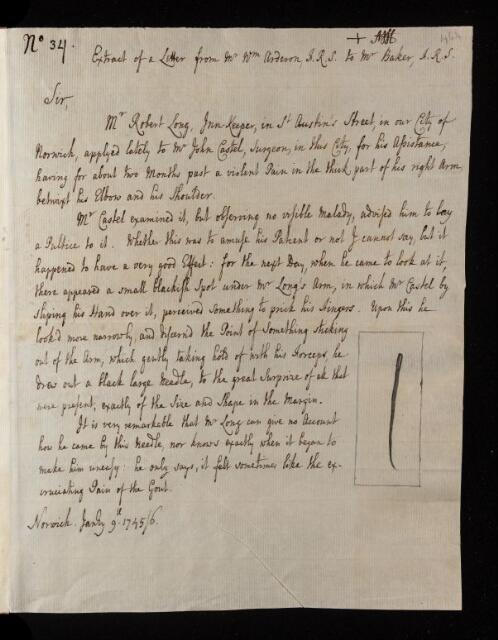 No 34.
Extract of a Letter from Mr Wm Arderon, F.R.S. to Mr Baker, F.R.S.
Sir,
Mr Robert Long, Inn-Keeper, in St Austin's Street, in our City of
Norwich, applyed lately to Mr John Castel, Surgeon, in this City, for his Assistance,
having for about two Months past a violent Pain in the thick part of his right Arm,
betwixt his Elbow and his Shoulder.
Mr Castel examined it, but observing no visible Malady, advised him to lay
a Pultice to it. Whether this was to amuse his Patient or not I cannot say, but it
happened to have a very good Effect: for the next Day, when he came to look at it,
there appeared a small blackish Spot under Mr Long's Arm, in which Mr Castel by
sliping his Hand over it, perceived something to prick his Fingers. Upon this he
look'd more narrowly, and discernd the Point of Something sticking
out of the Arm, which gently taking hold of with his Forceps, he
drew out a black large Needle, to the great Surprize of all that
were present, exactly of the Size and Shape in the Margin.
It is very remarkable that Mr Long can give no Account
how he came by this Needle, nor knows exactly when it began to
make him uneasy: he only says, it felt sometimes like the ex-
cruciating Pain of the Gout.
Norwich. Janry 9th 1745/6.